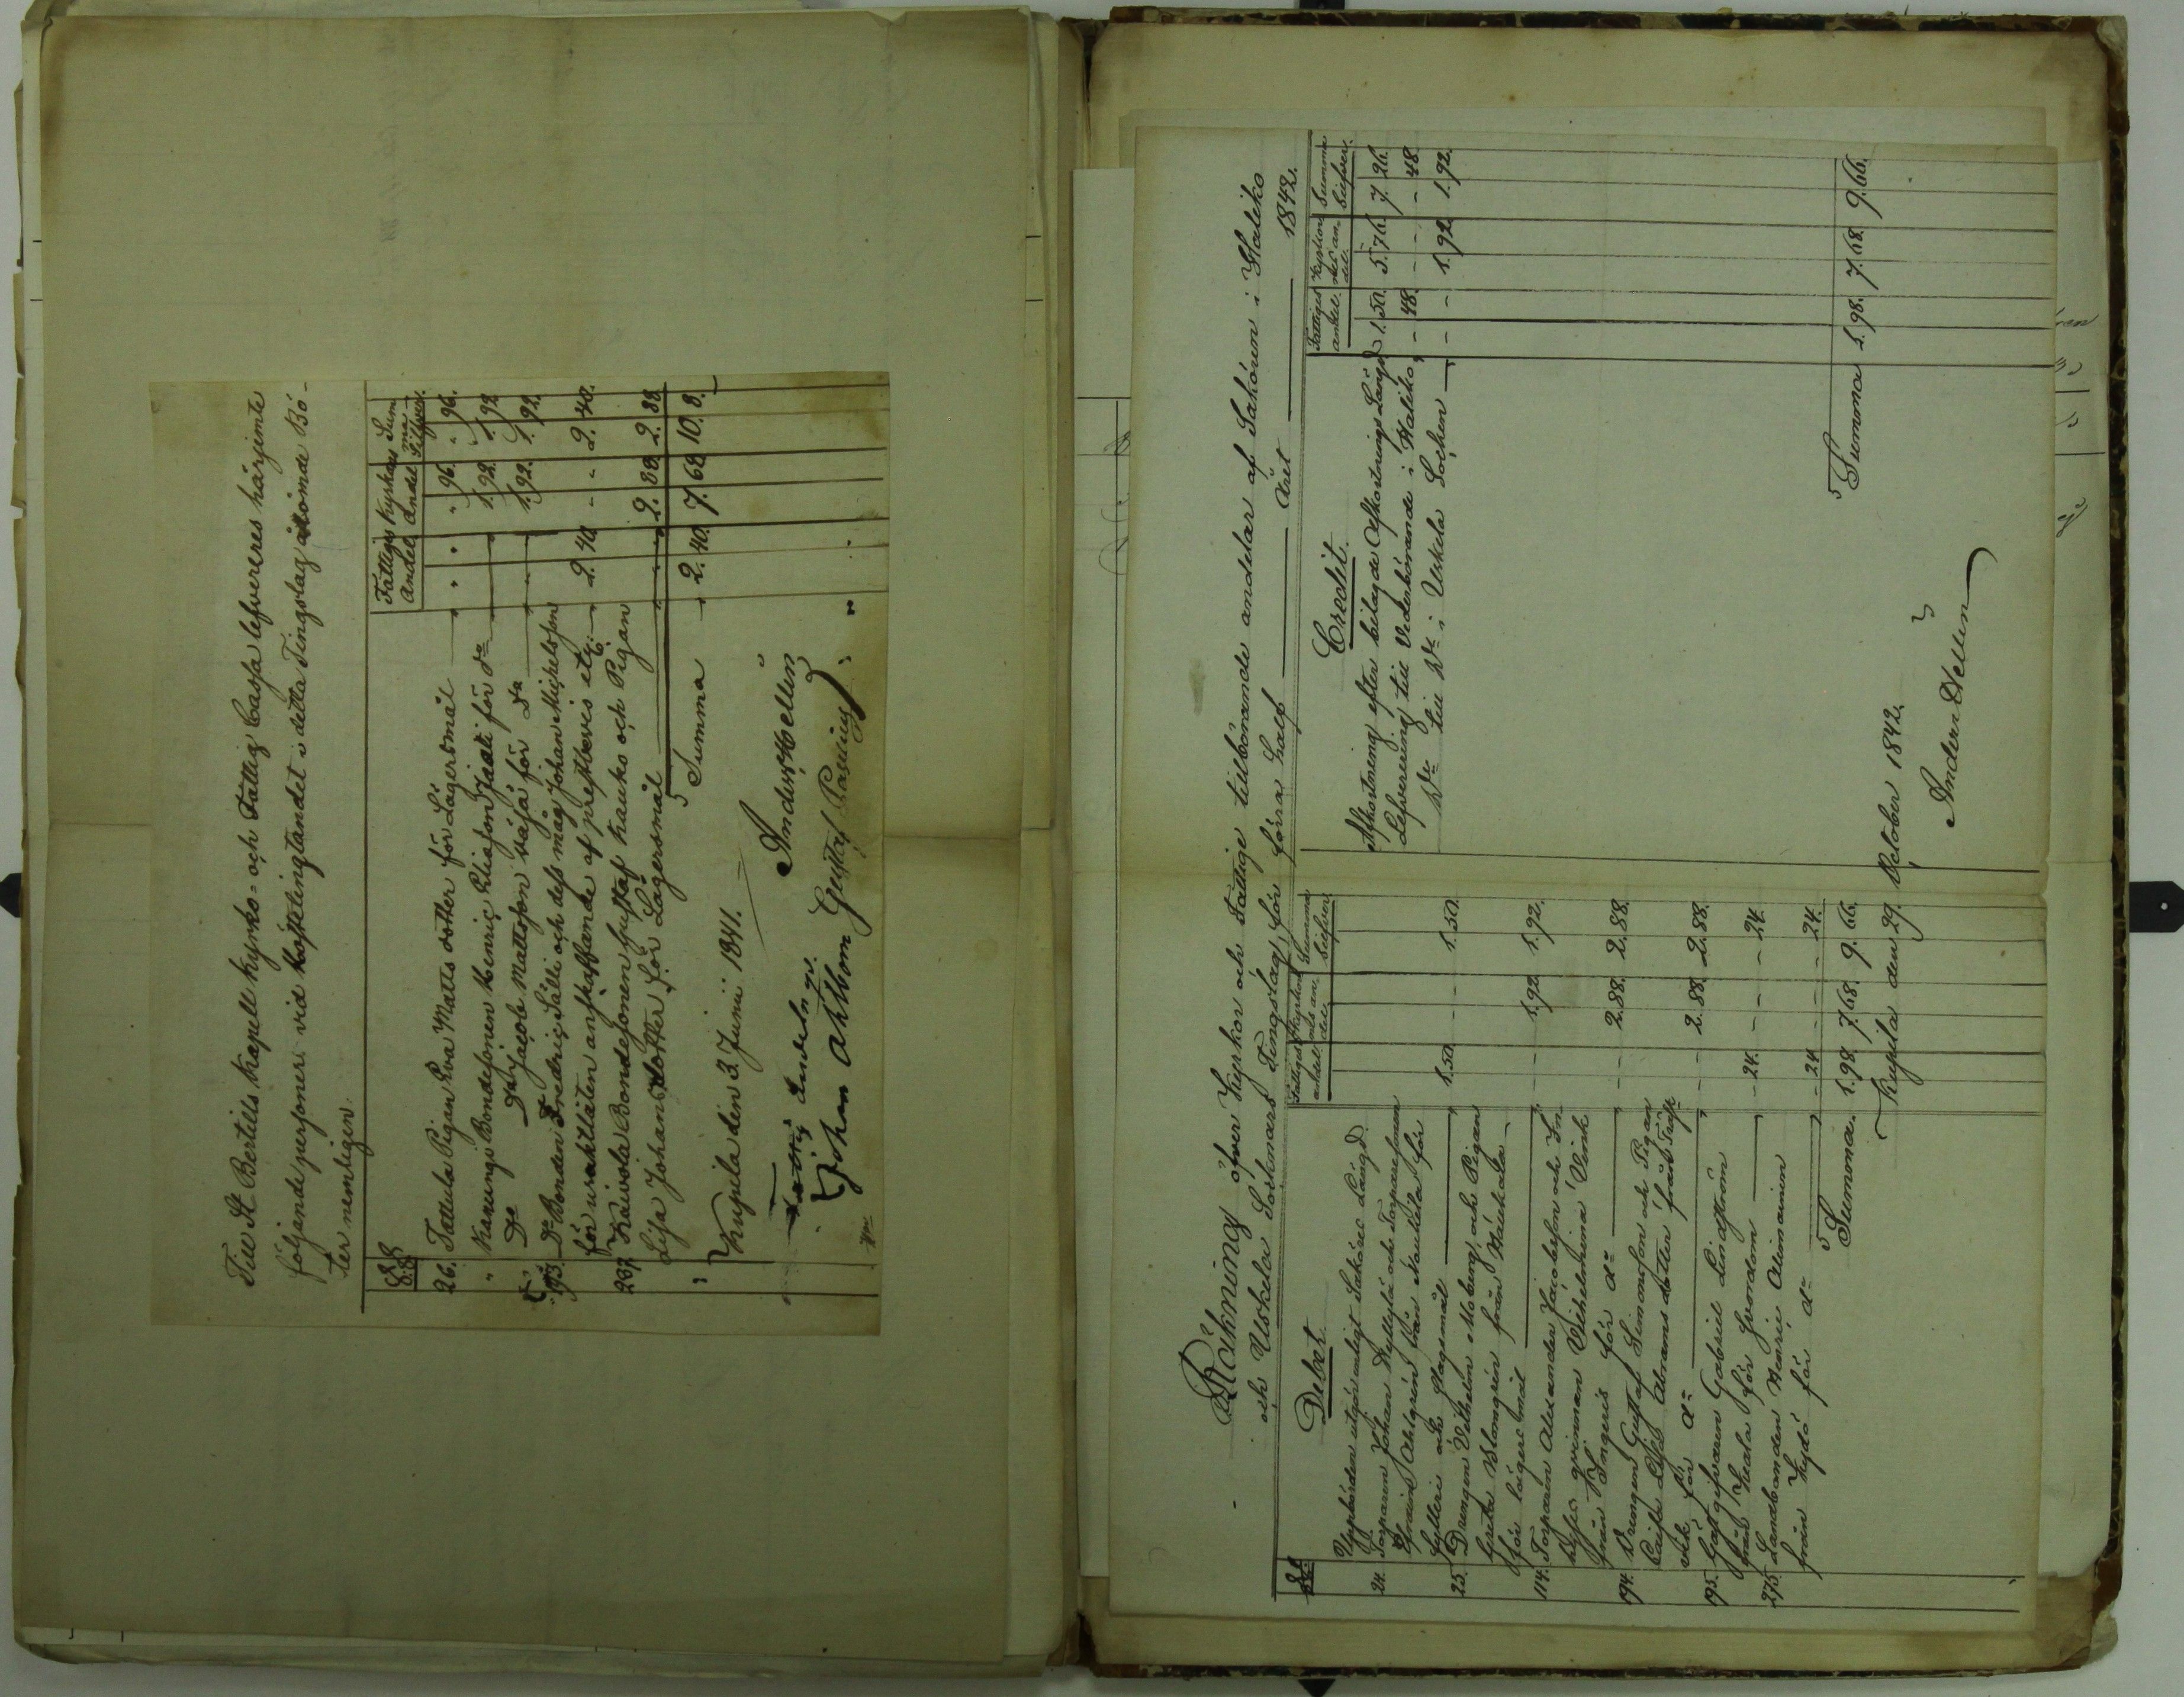 Till St Bertills Kapell Kyrko- och Fattig Cassa lefvereres härjemte
följande personer vid Höstetingtandet i detta Tingslag ådömde Bö-
ter nemligen
Fattiges Andel Kyrkans Andel Summa Silfver.
26. Tattula Pigan Eva Matts dotter för Lägersmål " " " 96. " 96.
" Karungi Bondesonen Henric Eliasson för do 1. 92. 1. 92
Do Do Jacob Mattsson för do 1. 92. 1. 92.
193. Do Bonden Fredric Sälli och dess måg Johan Michelsson
för uraktlåten anskaffande af prestbevis 2. 40 " " 2. 40.
237. Kaivola Bondesonen Gustaf Kauko och Pigan
Lisa Johans dotter för Lägersmål 2. 88. 2. 88
Summa 2. 40. 7. 68 10. 8.
Kupila den 2 Junii 1841.
Anders Hellen
Johan Ahlbom Gustaf
Räkning öfver Kyrkor och Fattige tillhörande andelar af Saköron i Haliko
och Uskela Socknars Tingslag, för förra half Året 1842.
Debet
Fattiges andel. Kyrkornes andel. Summa Silfver.
Uppbörden utgör enligt Saköres Längd
24. Torparen Johan Hyllylä och Torparesonen
Efraim Ahlgrén från Naukkila för
fylleri och slagsmål 1. 50. - - 1. 50.
25. Drengen Vilhelm Moberg och Pigan
Greta Blomgrén från
för lägersmål - - 1. 92 1. 92.
114. Torparen Alexander Jacobsson och In-
hyses qvinnan Vilhelmina
från Ingeris för do - - 2. 88. 2. 88.
194. Drengen Gustaf Simonsson och Pigan
Caisa Lisa Abrams dotter från
för do - - 2. 88. 2. 88.
195. Gästgifvaren Gabriel Lindström
från för hvordom - 24. - - - 24.
275. Landbonden Henric
från för do - 24 - - - 24.
Summa. 1. 98. 7. 68. 9. 66.
Credit.
Fattiges andel. Kyrkornes andel. Summa Silfver.
Afkortning efter bilagde Afkortnings Längd 1. 50. 5. 76. 7. 26.
Lefverering till Vederbörande i Haliko - 48. - - - 48.
Do till Do i Uskela Socken - - 1. 92 1. 92.
Summa 1. 98. 7. 68. 9. 66.
Kupila den 29. October 1842.
Anders Hellen